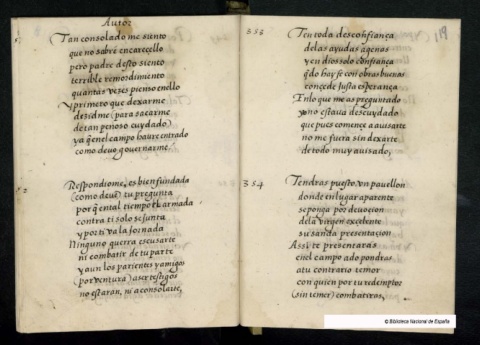 Autor
Tan consolado me siento
que no sabré encareçello
pero padre desto siento
terrible remordimiento
quantas vezes pienso enello
y primero que dexarme
desidme (para sacarme
de tan penoso cuydado)
ya q̃ enel campo haure entrado
como deuo gouernarme.
Respondiome, es bien fundada
(como deue) tu pregunta
por q̃ en tal tiempo armada
contra ti solo se junta
y por ti va la jornada
Ninguno querra escusarte
ni combatir de tu parte
y aun los parientes y amigos
(por ventura) a ser testigos
no estaran, ni a consolarte,
119
353
Ten toda desconfiança
de las ayudas agenas
y en dios solo confiança
q̃ do hay fe con obras buenas
conçede justa esperança
En lo que me as preguntado
yo no estaua descuydado
que pues començe a auisarte
no me fuera sin dexarte
de todo muy auisado,
354
Tendras puesto, un pauellon
donde en lugar aparente
se ponga por deuoçion
dela virgen excelente
su sancta presentaçion
Assi te presentarás
en el campo ado pondras
atu contrario temor
con quien por tu redemptor
(sin temer) combatiras,
© Biblioteca Nacional de España